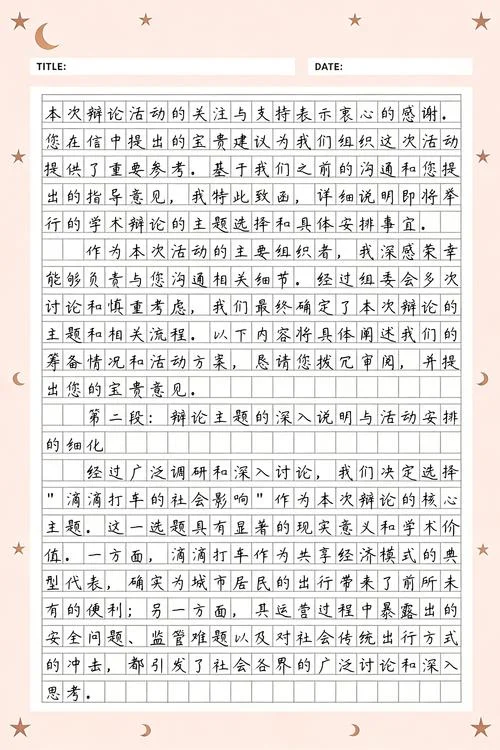 TITLE: DATE:
本次辩论活动的关注与支持表示衷心的感谢.
您在信中提出的宝贵建议为我们组织这次活动
提供了重要参考. 基于我们之前的沟通和您提
出的指导意见, 我特此致函, 详细说明即将举
行的学术辩论的主题选择和具体安排事宜.
作为本次活动的主要组织者, 我深感荣幸
能够负责与您沟通相关细节. 经过组委会多次
讨论和慎重考虑, 我们最终确定了本次辩论的
主题和相关流程. 以下内容将具体阐述我们的
筹备情况和活动方案, 恳请您拨冗审阅, 并提
出您的宝贵意见.
第二段: 辩论主题的深入说明与活动安排
的细化
经过广泛调研和深入讨论, 我们决定选择
"滴滴打车的社会影响"作为本次辩论的核心
主题. 这一选题具有显著的现实意义和学术价
值. 一方面, 滴滴打车作为共享经济模式的典
型代表, 确实为城市居民的出行带来了前所未
有的便利; 另一方面, 其运营过程中暴露出的
安全问题、监管难题以及对社会传统出行方式
的冲击, 都引发了社会各界的广泛讨论和深入
思考.